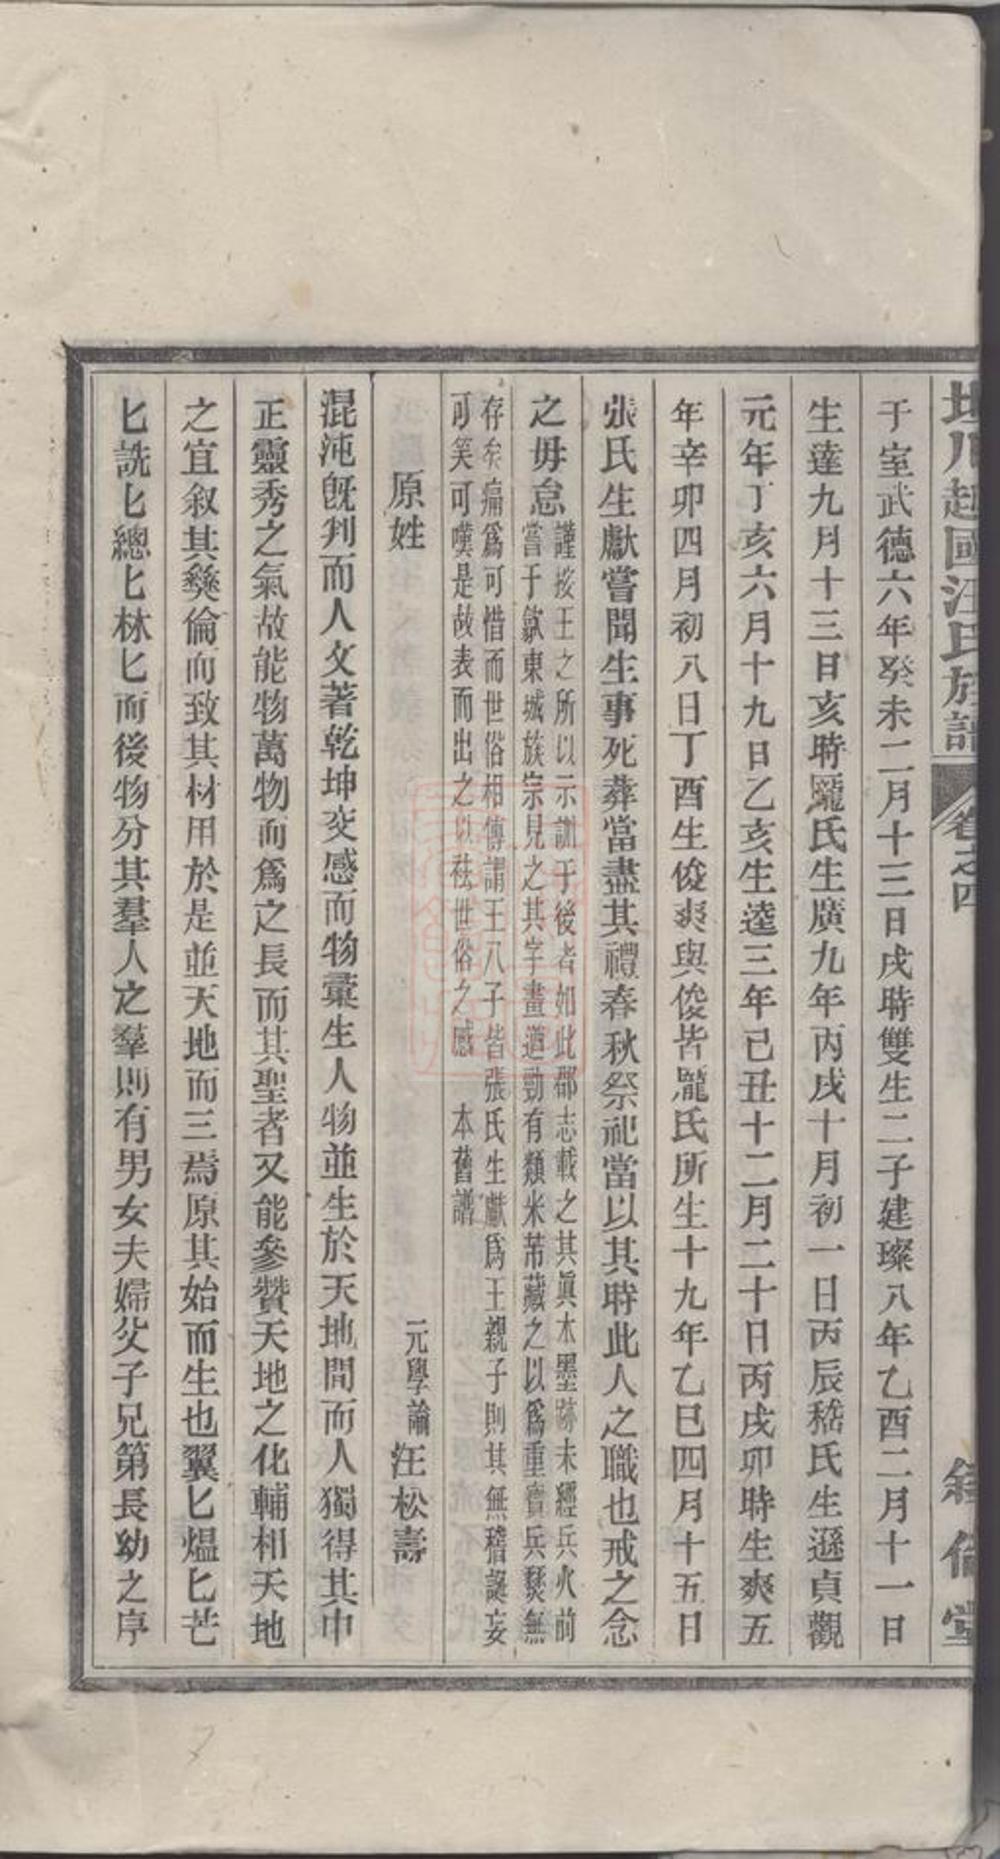 坦川越國汪氏族譜 卷之四 敘倫堂
于室武德六年癸未二月十三日戌時雙生二子建璨八年乙酉二月十一日
生達九月十三日亥時龐氏生廣九年丙戌十月初一日丙辰嵇氏生遜貞觀
元年丁亥六月十九日乙亥生逵三年已丑十二月二十日丙戌卯時生爽五
年辛卯四月初八日丁酉生俊爽與俊皆龐氏所生十九年乙巳四月十五日
張氏生獻嘗聞生事死葬當盡其禮春秋祭祀當以其時此人之職也戒之念
之毋怠
謹按王之所以示訓于後者如此郡志載之其眞木墨跡未經兵火前
嘗于歙東城族宗見之其字畫遒勁有類米芾藏之以爲重寶兵燹無
存矣痛爲可惜而世俗相傳謂王八子皆張氏生獻爲王親子則其無稽誕妄
可笑可嘆是故表而出之以袪世俗之惑 本舊譜
原姓 元學諭汪松壽
混沌旣判而人文著乾坤交感而物彙生人物並生於天地間而人獨得其中
正靈秀之氣故能物萬物而爲之長而其聖者又能參贊天地之化輔相天地
之宜叙其彜倫而致其材用於是並天地而三焉原其始而生也翼匕熅匕芒
匕詵匕總匕林匕而後物分其羣人之羣則有男女夫婦父子兄第長幼之序